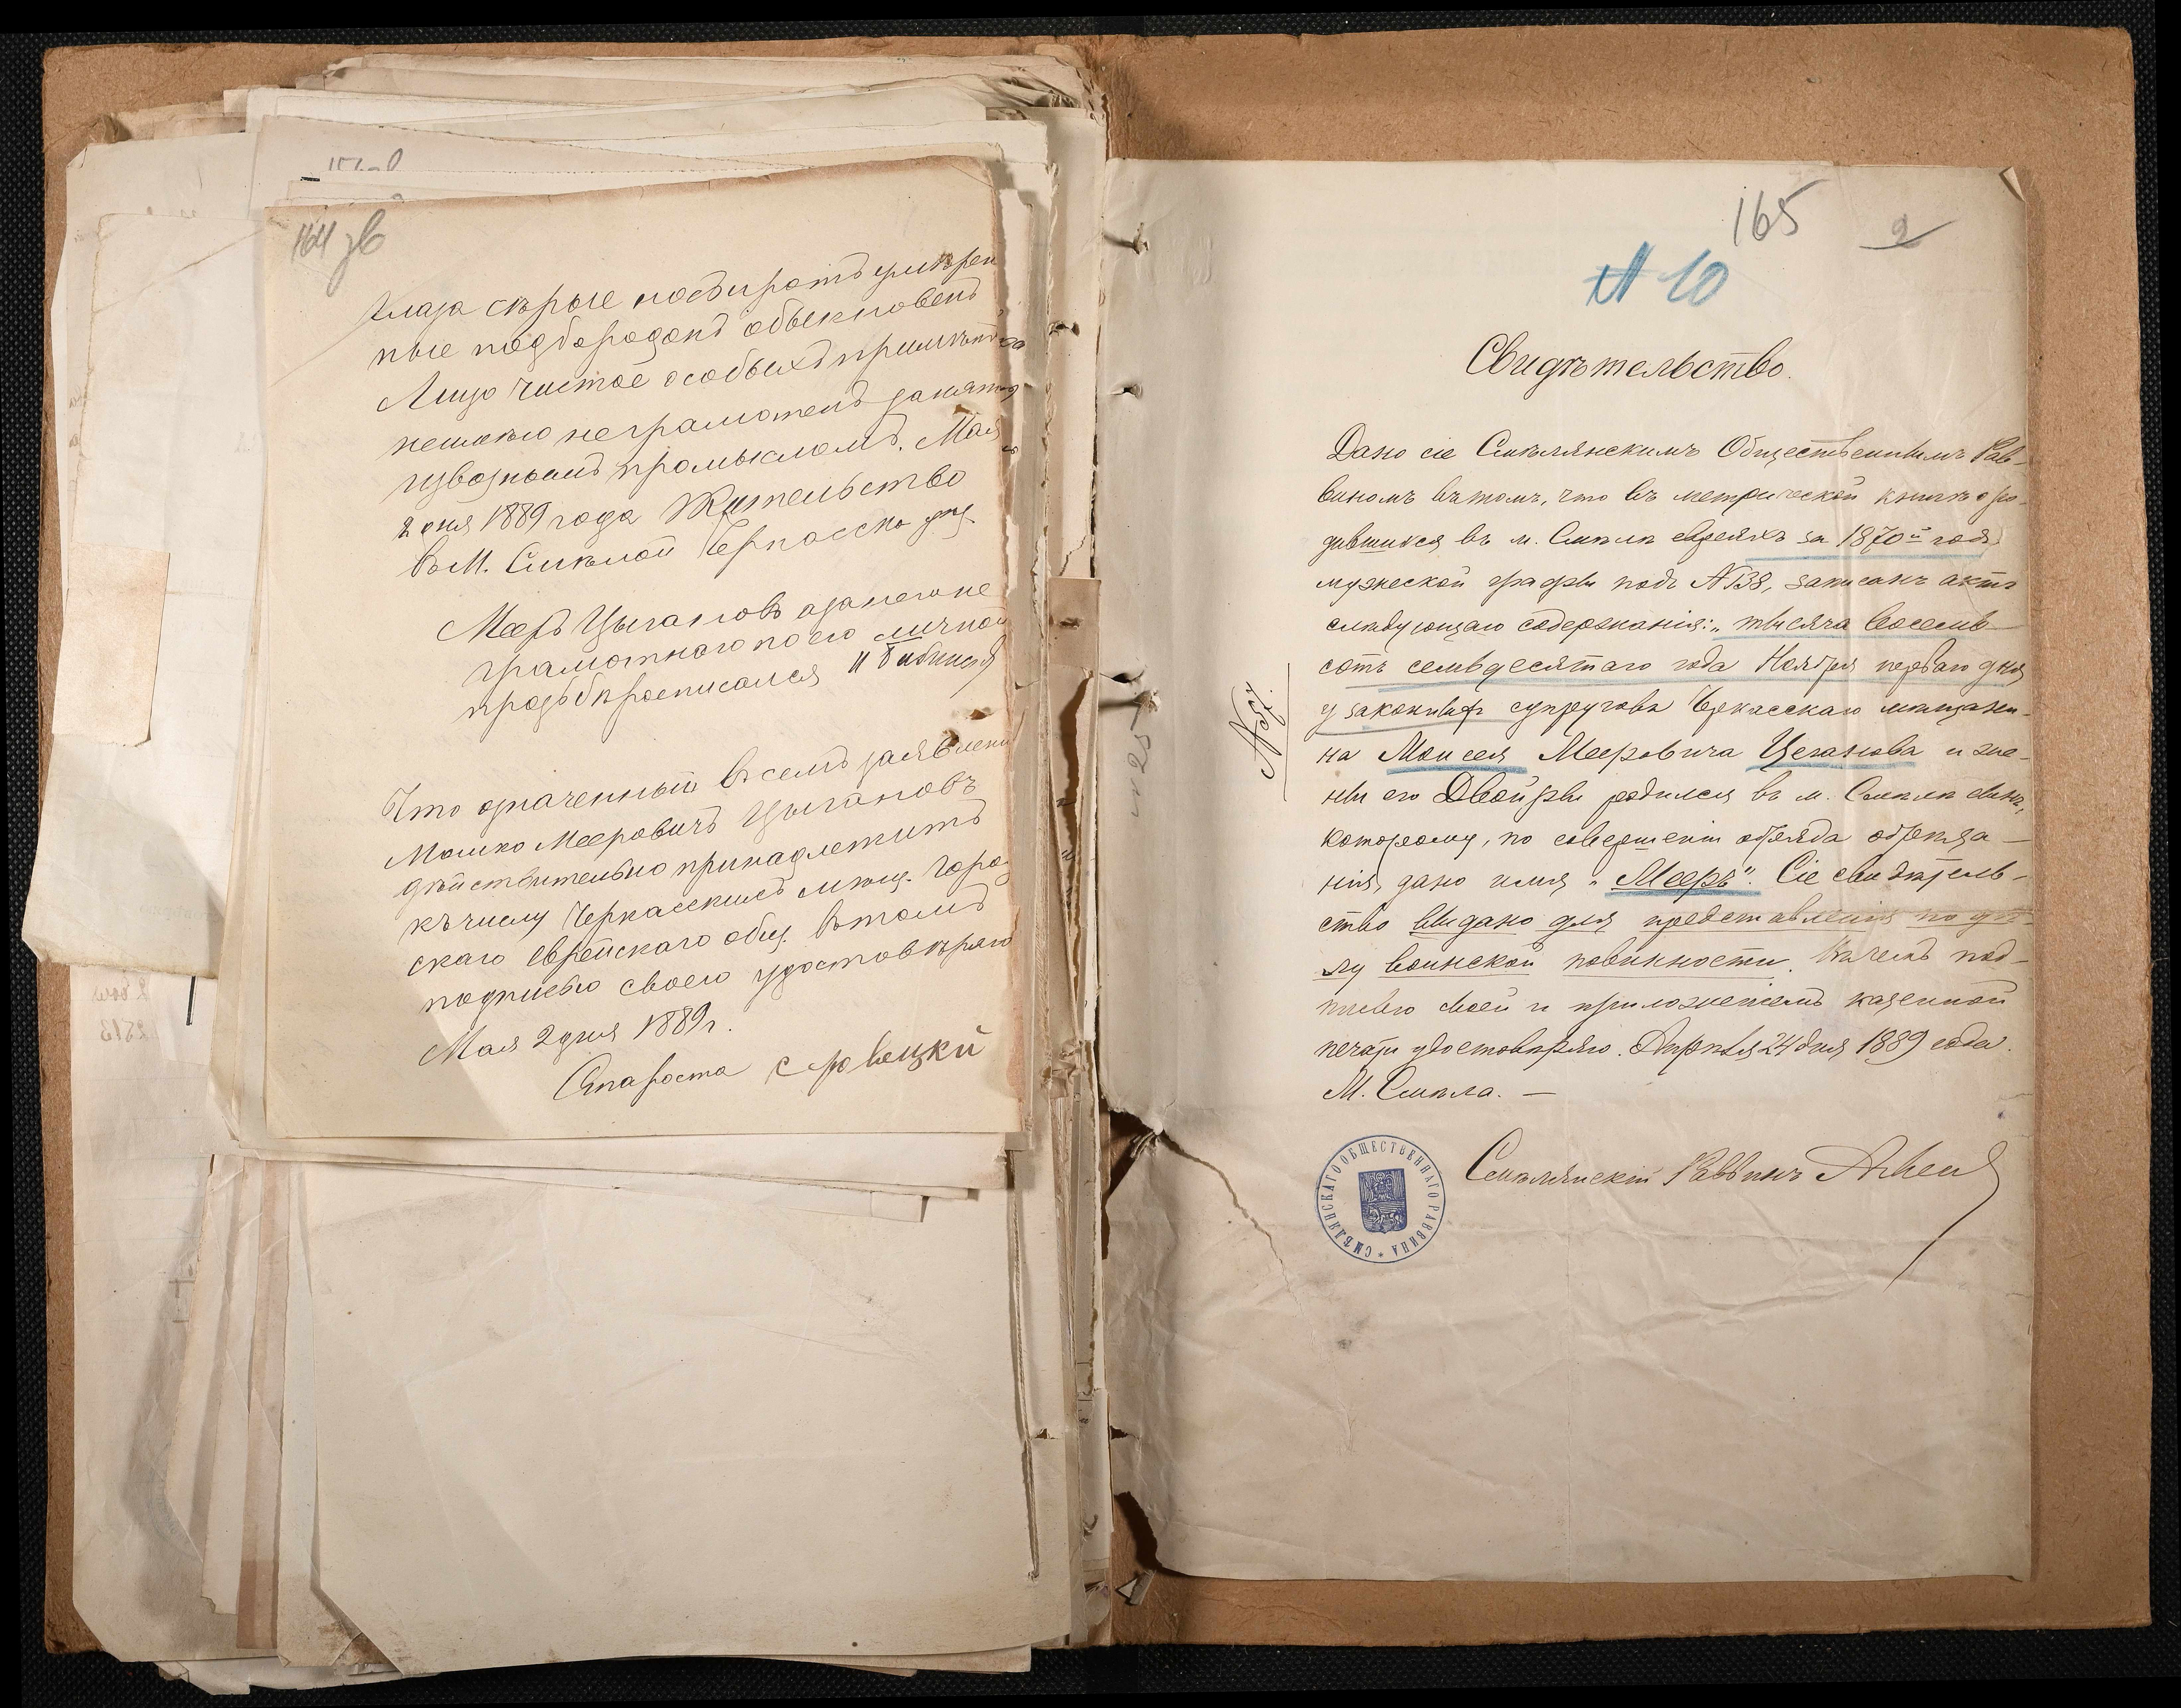 164 зв
Глаза серые носъ и ротъ умѣрен
ные подбородокъ обыкновенъ
Лицо чистое особыхъ примѣтъ
неимѣю неграмотенъ занят
извознымъ промысломъ. Мая
2 дня 1889 года Жительство
въ М. Смѣлой Черкасска уѣз.
Мееръ Цыгановъ азанегоне
грамотнаго по его личной
прозьбѣ росписался
Что означенный въ семъ заявлени
Мошко Мееровичъ Цыгановъ
дѣйствительно принадлежитъ
къ числу Черкасскихъ мѣщ. Горо
скаго еврейскаго общ. Въ томъ
подписью своею удостовѣряю
Мая 2 дня 1889 г.
Староста
165 2
N 10
Свидѣтельство.
Дано сіе Смѣлянскимъ Общественнымъ Рав-
виномъ въ томъ, что въ метрической книгѣ о ро-
дившихся въ м. Смѣлѣ евреяхъ за 1870й годъ
мужеской графы подъ N 138, записанъ актъ
слѣдующаго содержанія: „тысяча восемь-
сотъ семьдесятаго года Ноября перваго дня
у законныхъ супруговъ Черкасскаго мѣщани-
на Моисея Мееровича Цеганова и же-
ны его Двойры родился въ м. Смѣлѣ сынъ,
которому, по совершеніи обряда обрѣза-
нія, дано имя „Мееръ". Сіе свидѣтель-
ство выдано для представленія по дѣ-
лу воинской повинности. Въ чемъ под-
писью своей и приложеніемъ казенной
печати удостовѣряю. Апрѣля 24 дня 1889 года.
М. Смѣла. —
Смѣлянскій Раввинъ
СМѢЛЯНСКАГО ОБЩЕСТВЕННАГО РАВВИНА *